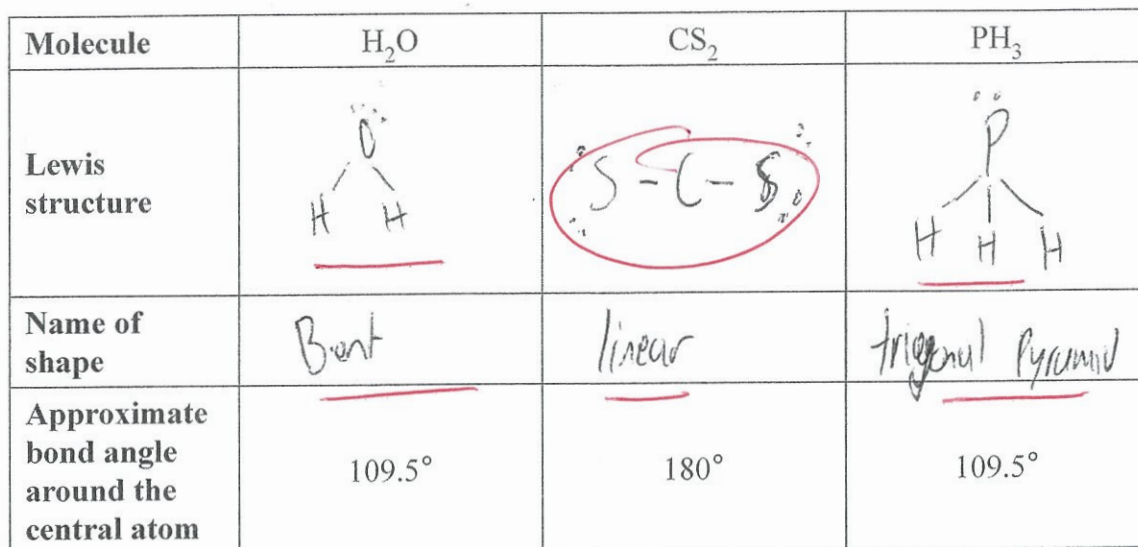 Molecule H₂O CS₂ PH₃
Lewis
structure
O
H H
S - C - S
P
H H H
Name of
shape
Bent linear trigonal Pyramid
Approximate
bond angle
around the
central atom
109.5° 180° 109.5°